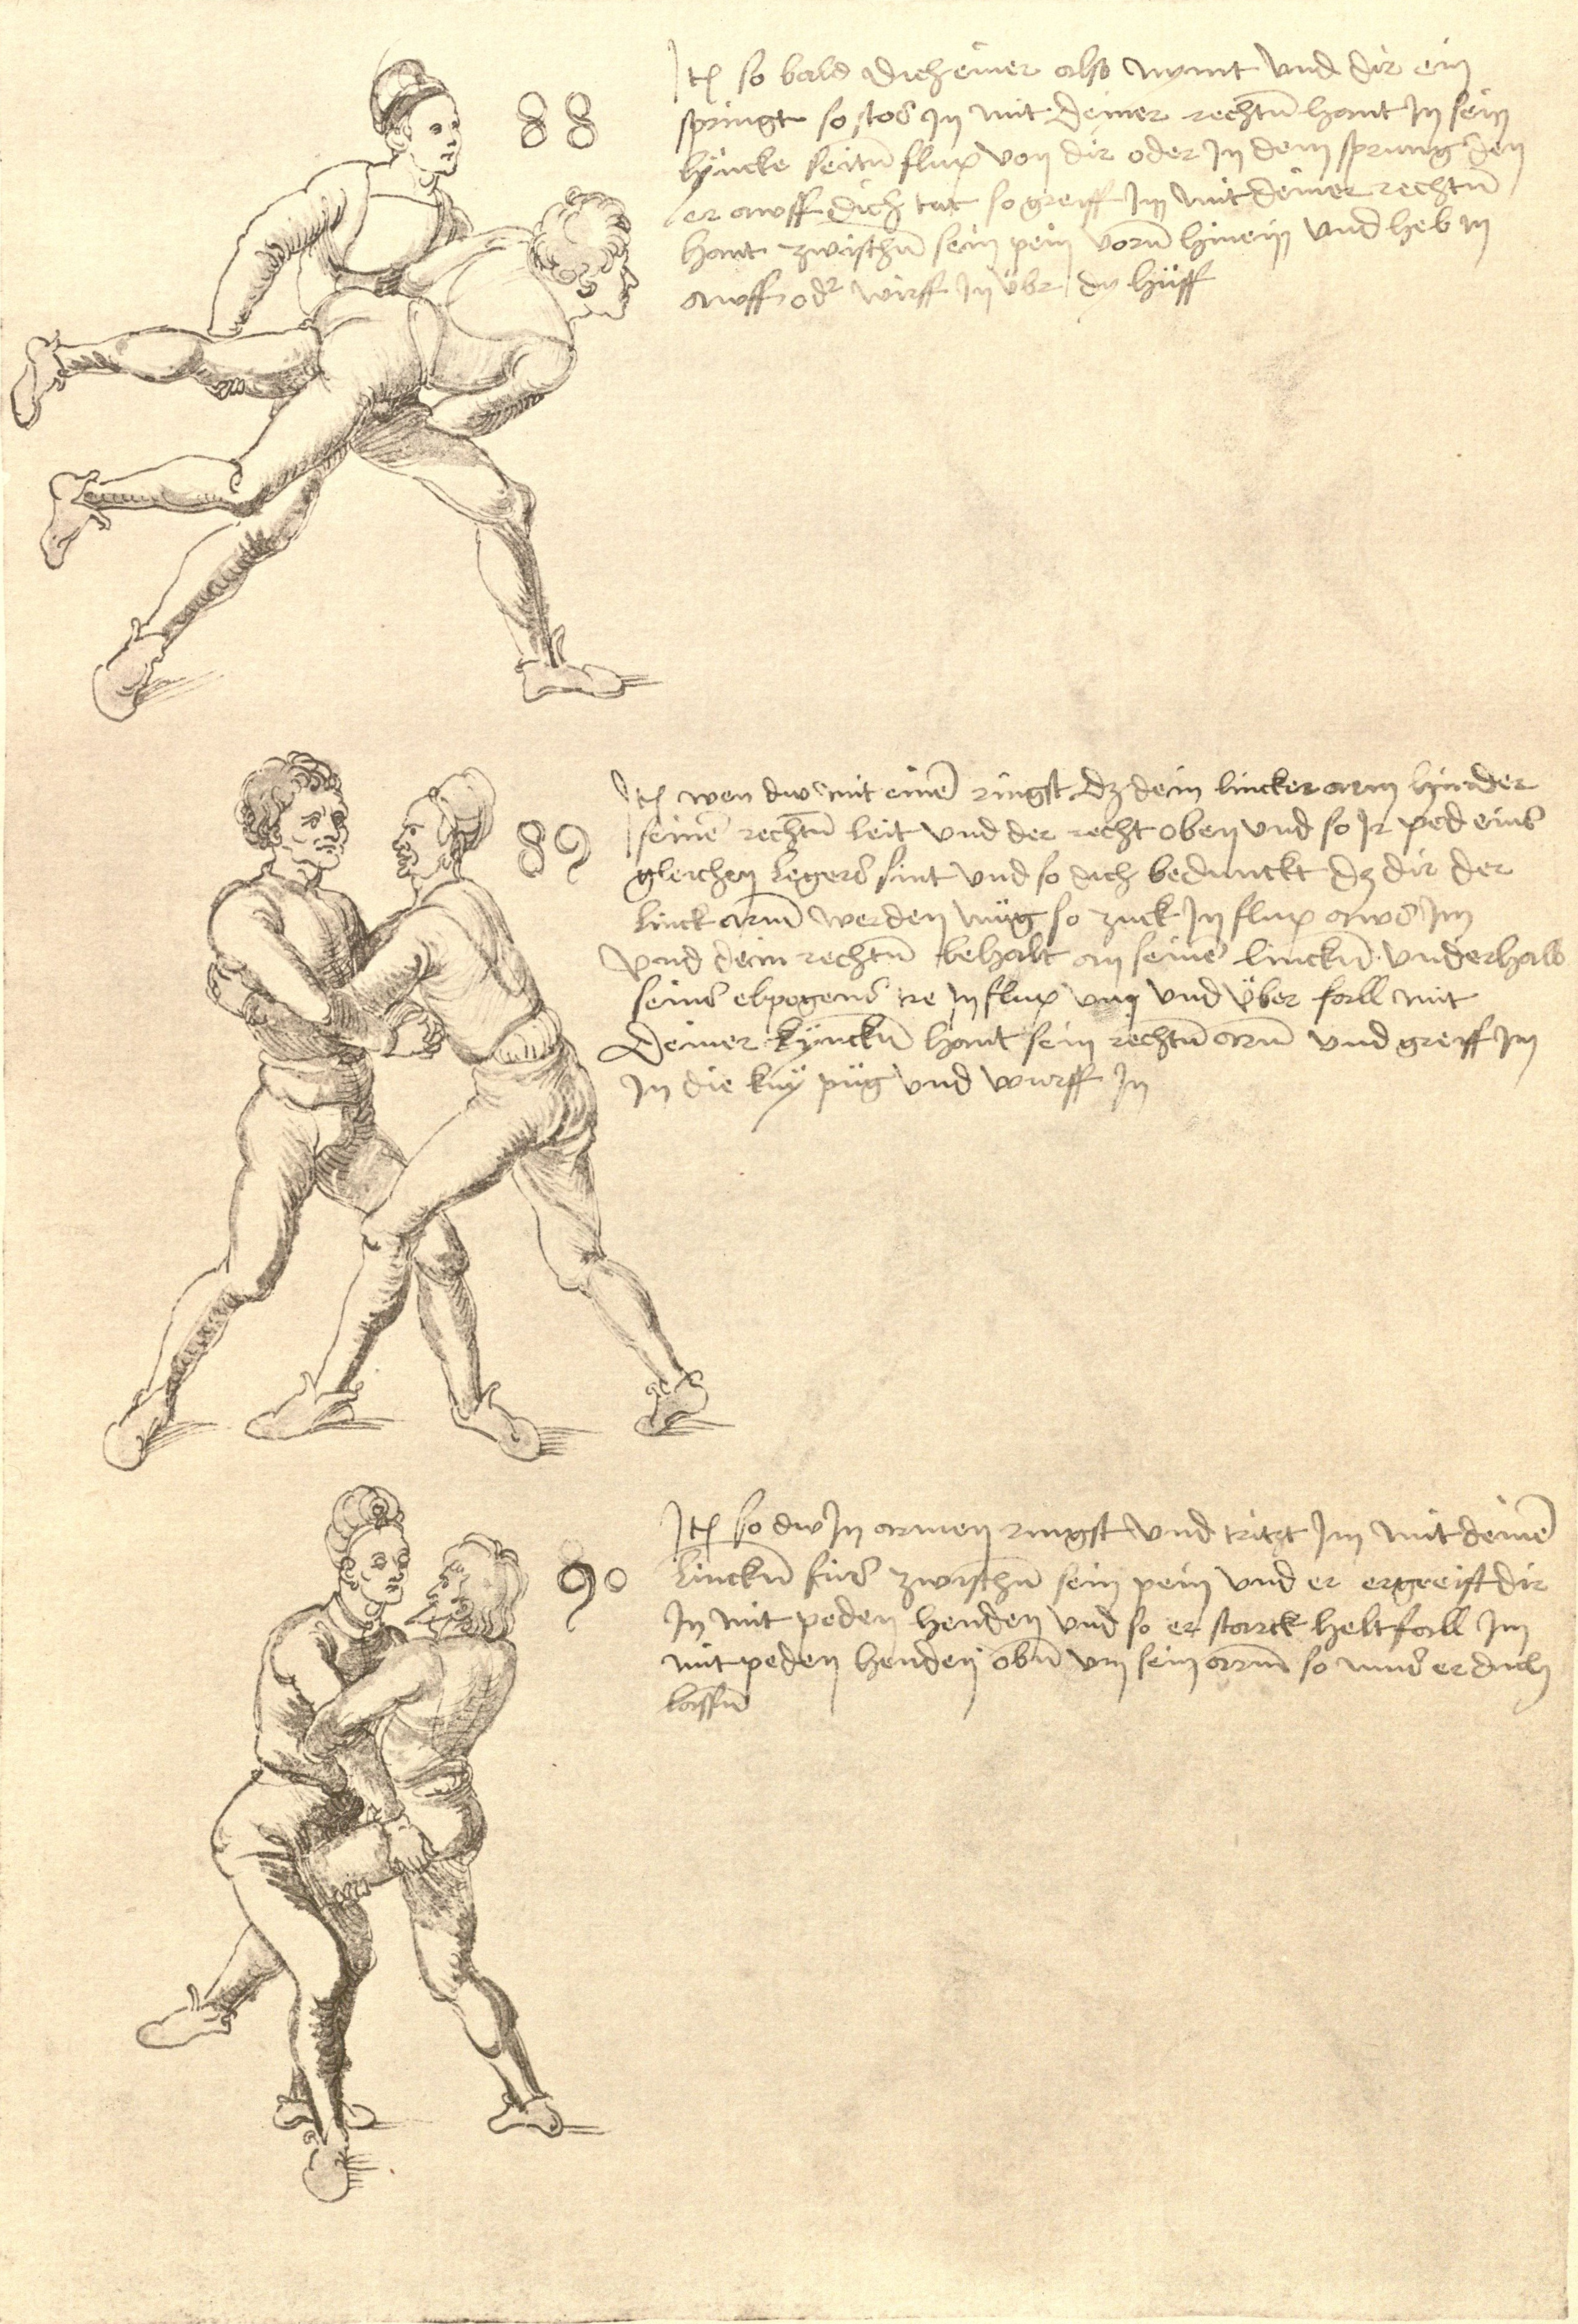 88
Itē so bald dich einer also nymt vnd dir ein
springt so stos in mit deiner rechtn̄ hant In sein
lyncke seitn̄ flux von dir oder In dem sprung den
er awff dich tut so greiff Im mit deiner rechtn̄
hant zwischn̄ sein pein vorn̄ hinein vnd heb in
awff odr wirff in übr dy hüff
89
Itē wen dw mit einē ringst dz dein lincker arm hinder
seinē rechtn̄ leit vnd der recht oben vnd so Ir ped eins
gleichen legers sint vnd so dich bedunckt dz dir der
linck arm werden müg so zuck In flux aws Im
vnd dein rechtn̄ behalt an seinē linckn̄ vnderhalb
seins elpogens tre In flux vm vnd über fall mit
deiner lynckn̄ hant sein rechtn̄ arm vnd greiff Im
In die kny püg vnd wurff In
90
Itē so dw In armen ringst vnd tritzt Im mit deinē
linckn̄ fus zwischn̄ sein pein vnd er ergreift dir
In mit peden henden vnd so er starck helt fall Im
mit peden henden obn̄ vm sein arm so mus er dich
lassn̄